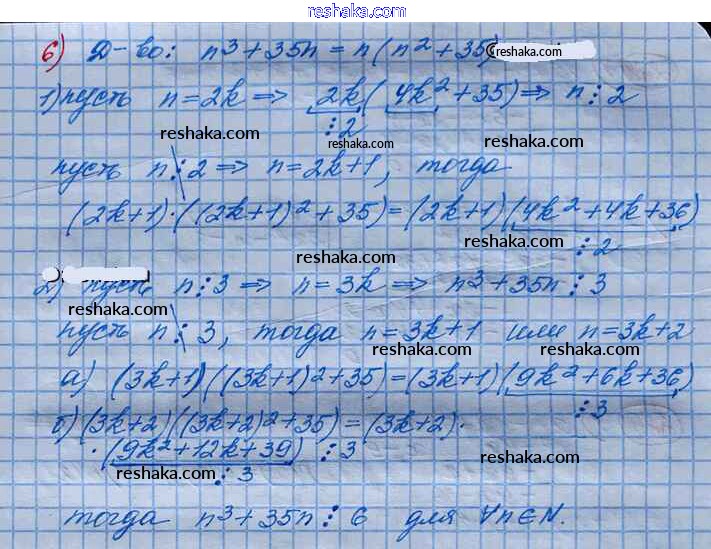 reshaka.com
6) Д-во: n³ + 35n = n(n² + 35) reshaka.com
1) пусть n = 2k ⇒ 2k(4k² + 35) ⇒ n⋮2
⋮2
reshaka.com reshaka.com
пусть n⋮̸2 ⇒ n = 2k+1, тогда
reshaka.com
(2k+1)·((2k+1)² + 35) = (2k+1)(4k² + 4k + 36)
reshaka.com reshaka.com ⋮2
2) пусть n⋮3 ⇒ n = 3k ⇒ n³ + 35n⋮3
reshaka.com
пусть n⋮̸3, тогда n = 3k+1 или n = 3k+2
reshaka.com reshaka.com reshaka.com
а) (3k+1)((3k+1)² + 35) = (3k+1)(9k² + 6k + 36)
⋮3
reshaka.com
б) (3k+2)((3k+2)² + 35) = (3k+2)·
·(9k² + 12k + 39) ⋮3
reshaka.com ⋮3 reshaka.com
тогда n³ + 35n⋮6 для ∀n∈N.
reshaka.com